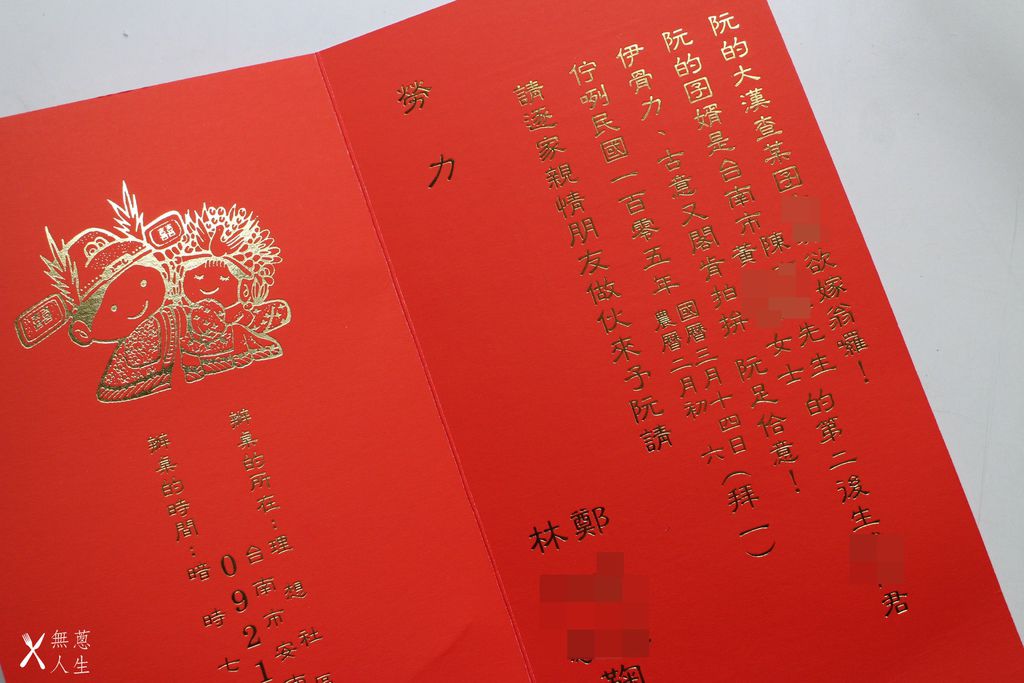 阮的大漢查某囝 欲嫁翁囉！
阮的囝婿是台南市陳 先生
黃 女士 的第二後生 君
伊骨力、古意又閣肯拍拚 阮足佮意！
佇咧民國一百零五年 國曆三月十四日 農曆二月初六 （拜一）
請逐家親情朋友做伙來予阮請
勞力
鄭
林
鞠
囍
囍
辦桌的所在：理想社
台南市安南區
0921
辦桌的時間：暗時七
無蔥
人生